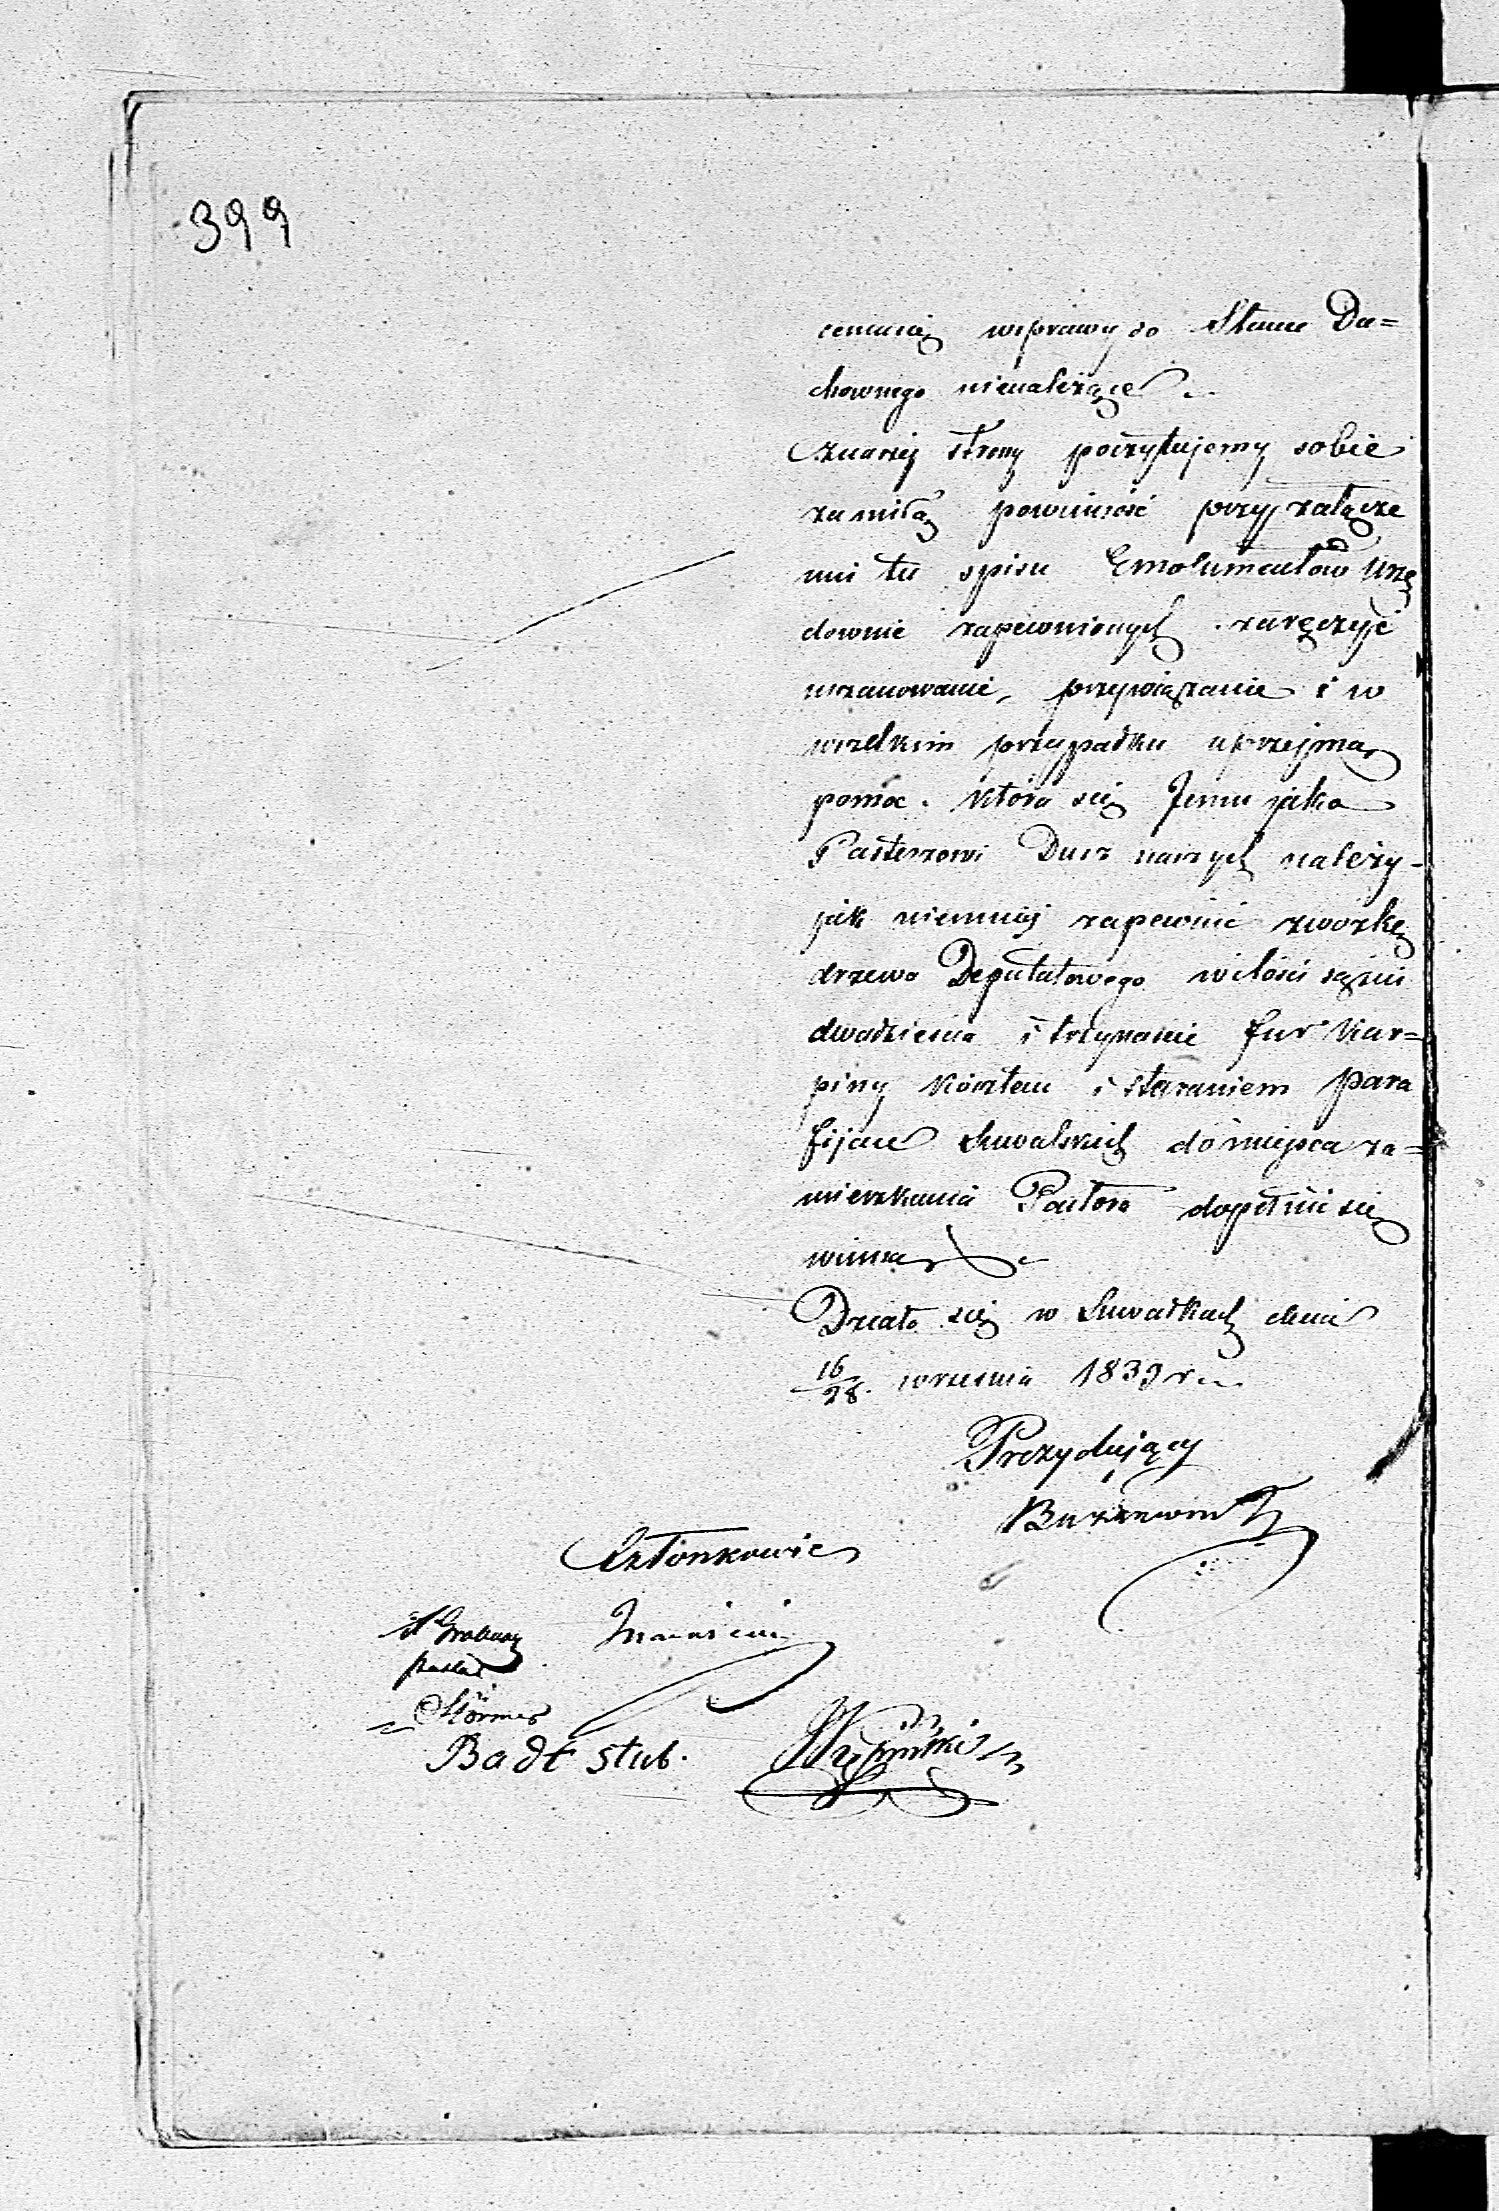 399
w sprawy do Stanu Du=
chownego nienależące
z naszej strony poczytujemy sobie
za miłą powinność przy załącze
niu tu spisu Emolumentów Urzę
downie zapewnionych zaręczyć
uszanowanie, przywiązanie i w
wszelkim przypadku uprzejmą
pomoc. która się Jemu jako
Pasterzowi Dusz naszych należy
jak niemniej zapewnić zwózkę
drzewa Deputatowego wilości sążni
dwadzieścia i trzynaście fur Kar=
piny kosztem i staraniem Para
fijan Suwalskich do miejsca za=
mieszkania Pastora dopełnić się
winną
Działo się w Suwałkach dnia
16/28 września 1839 r.
Prezydujący
Członkowie
Störmer
Badt stub.